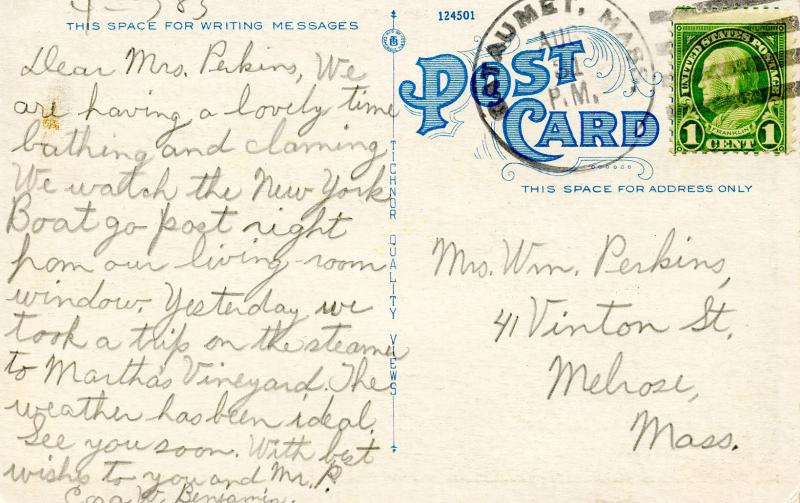 THIS SPACE FOR WRITING MESSAGES
Dear Mrs. Perkins, We
are having a lovely time
bathing and claming
We watch the New York
Boat go past right
from our living-room
window. Yesterday we
took a trip on the steamer
to Marthas Vineyard. The
weather has been ideal.
See you soon. With best
wishes to you and Mr. P.
W. Benjamin.
TICHNOR QUALITY VIEWS
124501
POST
CARD
THIS SPACE FOR ADDRESS ONLY
CATAUMET, MASS.
AUG
31
P.M.
UNITED STATES POSTAGE
FRANKLIN
1 CENT 1
Mrs. Wm. Perkins,
41 Vinton St.
Melrose,
Mass.